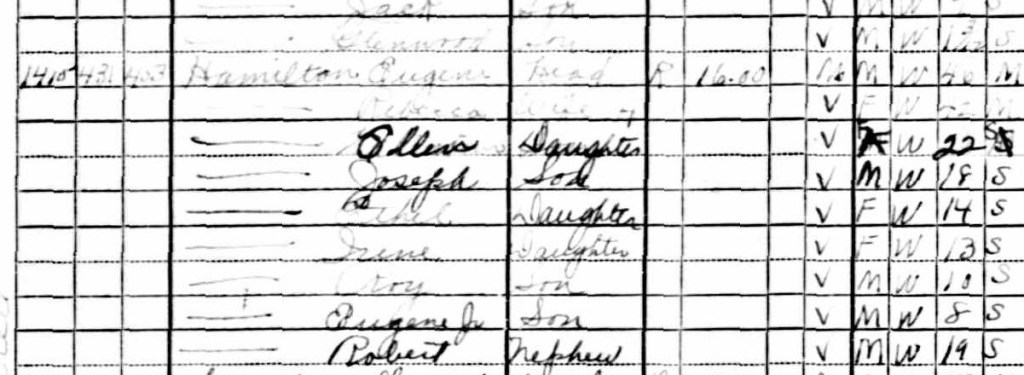 Jack Son V M W S
Glenwood Son V M W S
1415 431 453 Hamilton Eugene Head R 16.00 No M W 46 M
Rebecca Wife V F W M
Daughter V F W 22 S
Joseph Son V M W 18 S
Ethel Daughter V F W 14 S
Irene Daughter V F W 13 S
Son V M W 10 S
Eugene Jr Son V M W 8 S
Robert Nephew V M W 19 S